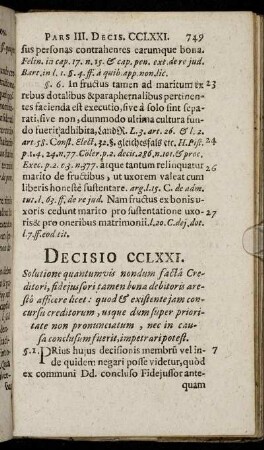 PARS III. DECIS. CCLXXI. 749
sus personas contrahentes earumque bona.
Felin. in cap. 17. n. 15. & cap. pen. ext. de re jud.
Bart. in l. 1. §. 4. ff. à quib. app. non. lic.
§. 6. In fructus tamen ad maritum ex 23
rebus dotalibus & paraphernalibus pertinen-
tes facienda est executio, sive à solo sint sepa-
rati, sive non, dummodo ultima cultura fun-
do fuerit adhibita,
art. 58. Const. Elect. 32. §. gleichesfals etc. 24
p. 1. 4. n. 77. Cöler. p. 2. decis. 286. n. 101. & proc.
Exec. p. 2. c. 3. n. 377. atque tantum relinquatur 26
marito de fructibus, ut uxorem valeat cum
liberis honestè sustentare. arg. l. 15. C. de adm.
tut. l. 63. ff. de re jud. Nam fructus ex bonis u-
xoris cedunt marito pro sustentatione uxo- 27
ris & pro oneribus matrimonii. l. 20. C. de j. dot.
l. 7. ff. eod. tit.
DECISIO CCLXXI.
Solutione quantumvis nondum factâ Cre-
ditori, fidejussori tamen bona debitoris are-
stò afficere licet: quod & existente jam con-
cursu creditorum, usque dum super priori-
tate non pronunciatum, nec in cau-
sa conclusum fuerit, impetrari potest.
§. 1. PRius hujus decisionis membrũ vel in- 7
de quidem negari posse videtur, quòd
ex communi Dd. concluso Fidejussor ante-
quam